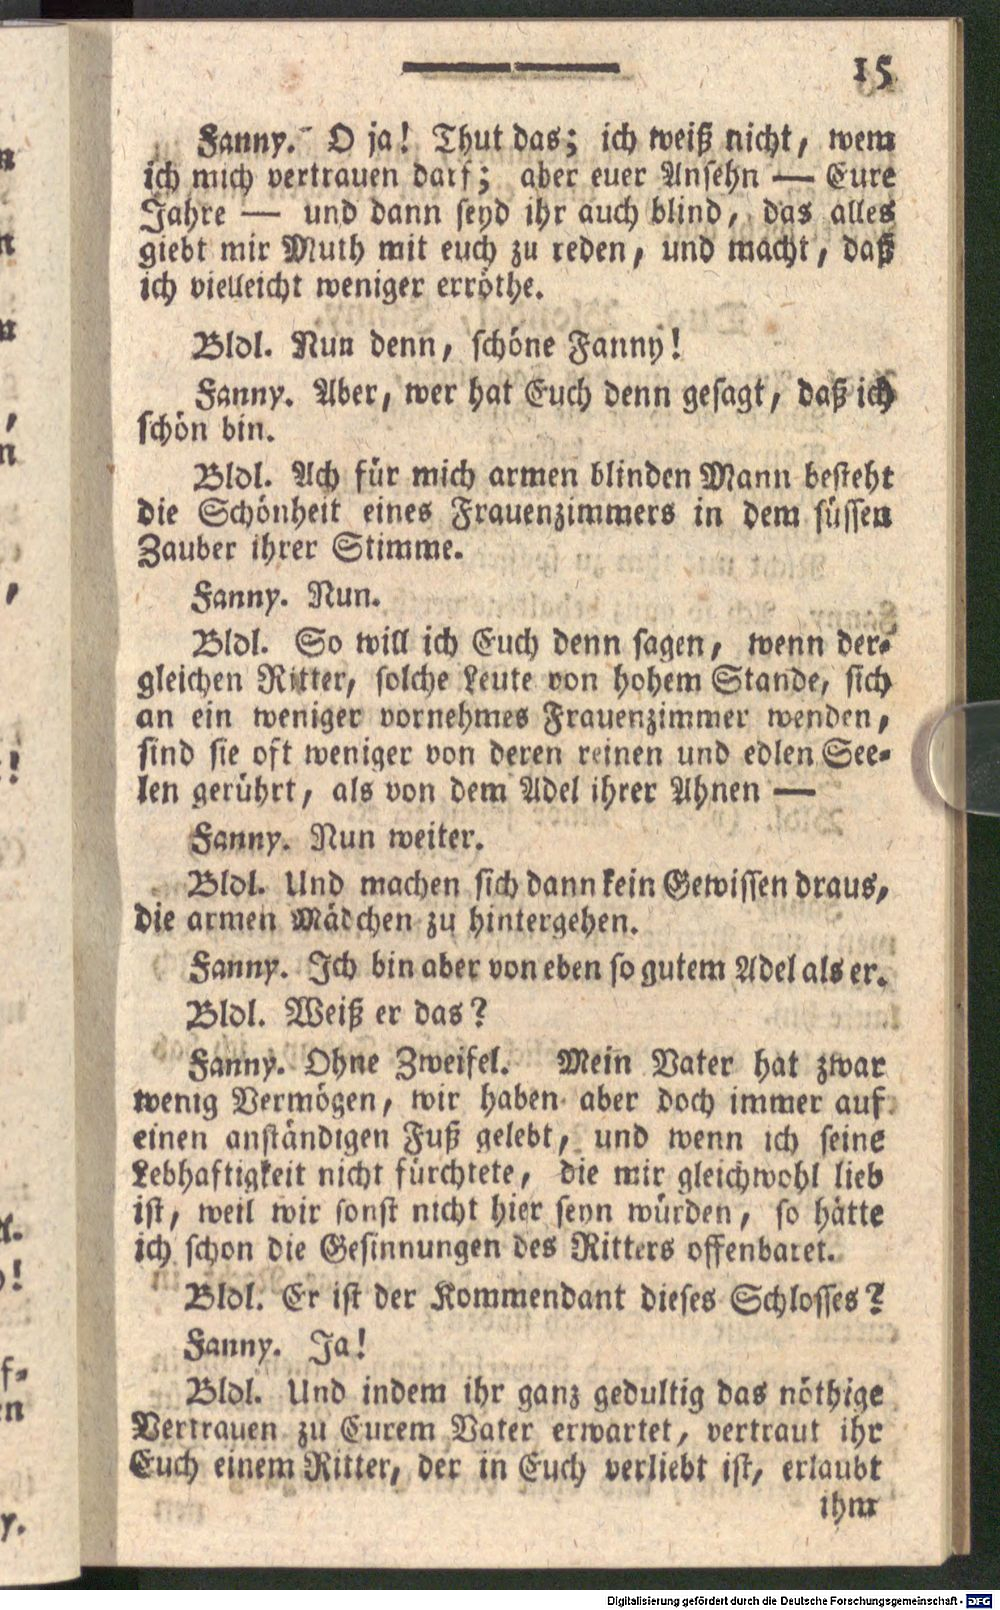 15
Fanny. O ja! Thut das; ich weiß nicht, wem
ich mich vertrauen darf; aber euer Ansehn — Eure
Jahre — und dann seyd ihr auch blind, das alles
giebt mir Muth mit euch zu reden, und macht, daß
ich vielleicht weniger erröthe.
Bldl. Nun denn, schöne Fanny!
Fanny. Aber, wer hat Euch denn gesagt, daß ich
schön bin.
Bldl. Ach für mich armen blinden Mann besteht
die Schönheit eines Frauenzimmers in dem süssen
Zauber ihrer Stimme.
Fanny. Nun.
Bldl. So will ich Euch denn sagen, wenn der-
gleichen Ritter, solche Leute von hohem Stande, sich
an ein weniger vornehmes Frauenzimmer wenden,
sind sie oft weniger von deren reinen und edlen See-
len gerührt, als von dem Adel ihrer Ahnen —
Fanny. Nun weiter.
Bldl. Und machen sich dann kein Gewissen draus,
die armen Mädchen zu hintergehen.
Fanny. Ich bin aber von eben so gutem Adel als er.
Bldl. Weiß er das?
Fanny. Ohne Zweifel. Mein Vater hat zwar
wenig Vermögen, wir haben aber doch immer auf
einen anständigen Fuß gelebt, und wenn ich seine
Lebhaftigkeit nicht fürchtete, die mir gleichwohl lieb
ist, weil wir sonst nicht hier seyn würden, so hätte
ich schon die Gesinnungen des Ritters offenbaret.
Bldl. Er ist der Kommendant dieses Schlosses?
Fanny. Ja!
Bldl. Und indem ihr ganz gedultig das nöthige
Vertrauen zu Eurem Vater erwartet, vertraut ihr
Euch einem Ritter, der in Euch verliebt ist, erlaubt
ihm
Digitalisierung gefördert durch die Deutsche Forschungsgemeinschaft - DFG